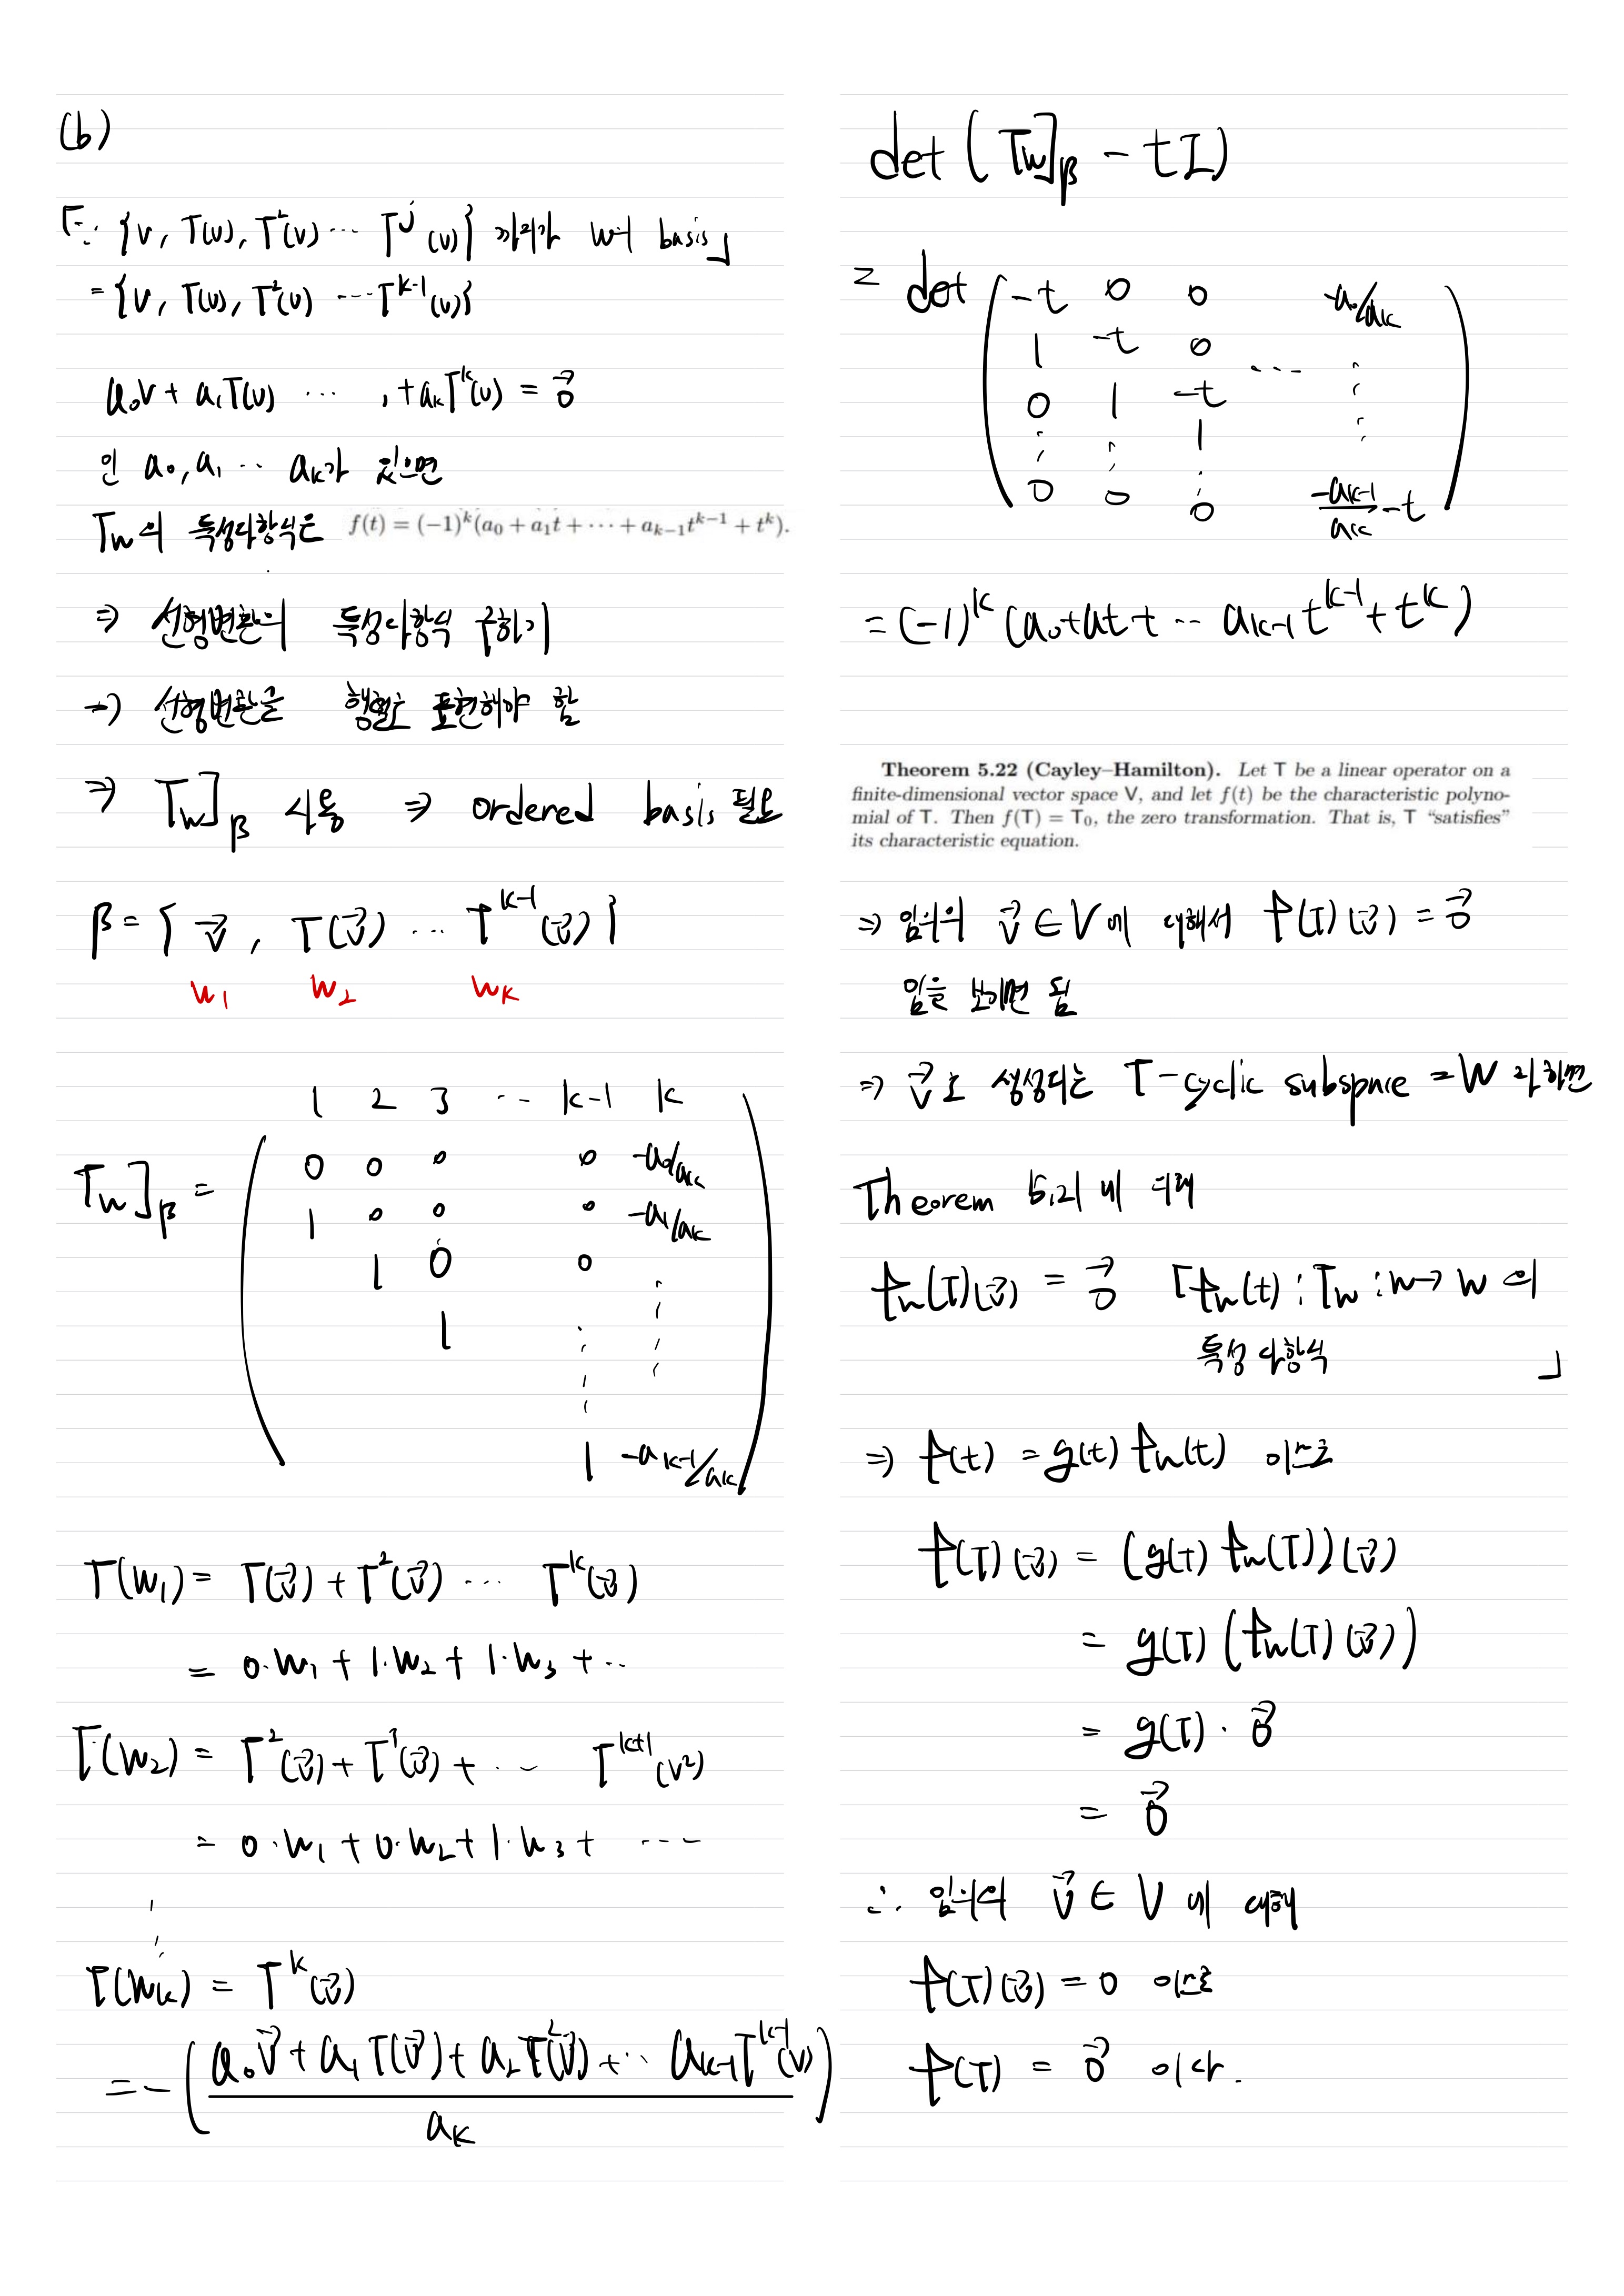 (b)
「∵ {v, T(v), T²(v) ⋯ Tʲ(v)} 까지가 W의 basis」
= {v, T(v), T²(v) ⋯ Tᵏ⁻¹(v)}
a₀v + a₁T(v) ⋯ , + aₖTᵏ(v) = 0⃗
인 a₀, a₁ ⋯ aₖ가 있으면
T_W의 특성다항식은 f(t) = (−1)ᵏ(a₀ + a₁t + ⋯ + aₖ₋₁tᵏ⁻¹ + tᵏ).
⇒ 선형변환의 특성다항식 구하기
→ 선형변환을 행렬로 표현해야 함
⇒ T_W]_β 사용 ⇒ ordered basis 필요
β = { v⃗, T(v⃗) ⋯ Tᵏ⁻¹(v⃗) }
w₁ w₂ wₖ
1 2 3 ⋯ k-1 k
0 0 0 0 -a₀/aₖ
T_W]_β =
1 0 0 0 -a₁/aₖ
1 0 0
1
1 -aₖ₋₁/aₖ
T(w₁) = T(v⃗) + T²(v⃗) ⋯ Tᵏ(v⃗)
= 0·w₁ + 1·w₂ + 1·w₃ + ⋯
T(w₂) = T²(v⃗) + T³(v⃗) + ⋯ Tᵏ⁺¹(v²)
= 0·w₁ + 0·w₂ + 1·w₃ + ⋯
T(wₖ) = Tᵏ(v⃗)
= −( (a₀v⃗ + a₁T(v⃗) + a₂T²(v⃗) + ⋯ aₖ₋₁Tᵏ⁻¹(v)) / aₖ )
det ( T_W]_β − tI )
= det
-t 0 0 -a₀/aₖ
1 -t 0
0 1 -t ⋯
1
0 0 0 -aₖ₋₁/aₖ -t
= (-1)ᵏ (a₀+a₁t + ⋯ aₖ₋₁tᵏ⁻¹ + tᵏ)
Theorem 5.22 (Cayley–Hamilton). Let T be a linear operator on a
finite-dimensional vector space V, and let f(t) be the characteristic polyno-
mial of T. Then f(T) = T₀, the zero transformation. That is, T “satisfies”
its characteristic equation.
⇒ 임의의 v⃗ ∈ V에 대해서 f(T)(v⃗) = 0⃗
임을 보이면 됨
⇒ v⃗로 생성되는 T-cyclic subspace = W 라하면
Theorem 5.21 에 의해
f_W(T)(v⃗) = 0⃗ 「f_W(t) : T_W : W → W 의
특성 다항식 」
⇒ f(t) = g(t) f_W(t) 이므로
f(T)(v⃗) = (g(T) f_W(T))(v⃗)
= g(T) (f_W(T)(v⃗))
= g(T) · 0⃗
= 0⃗
∴ 임의의 v⃗ ∈ V 에 대해
f(T)(v⃗) = 0 이므로
f(T) = 0⃗ 이다.